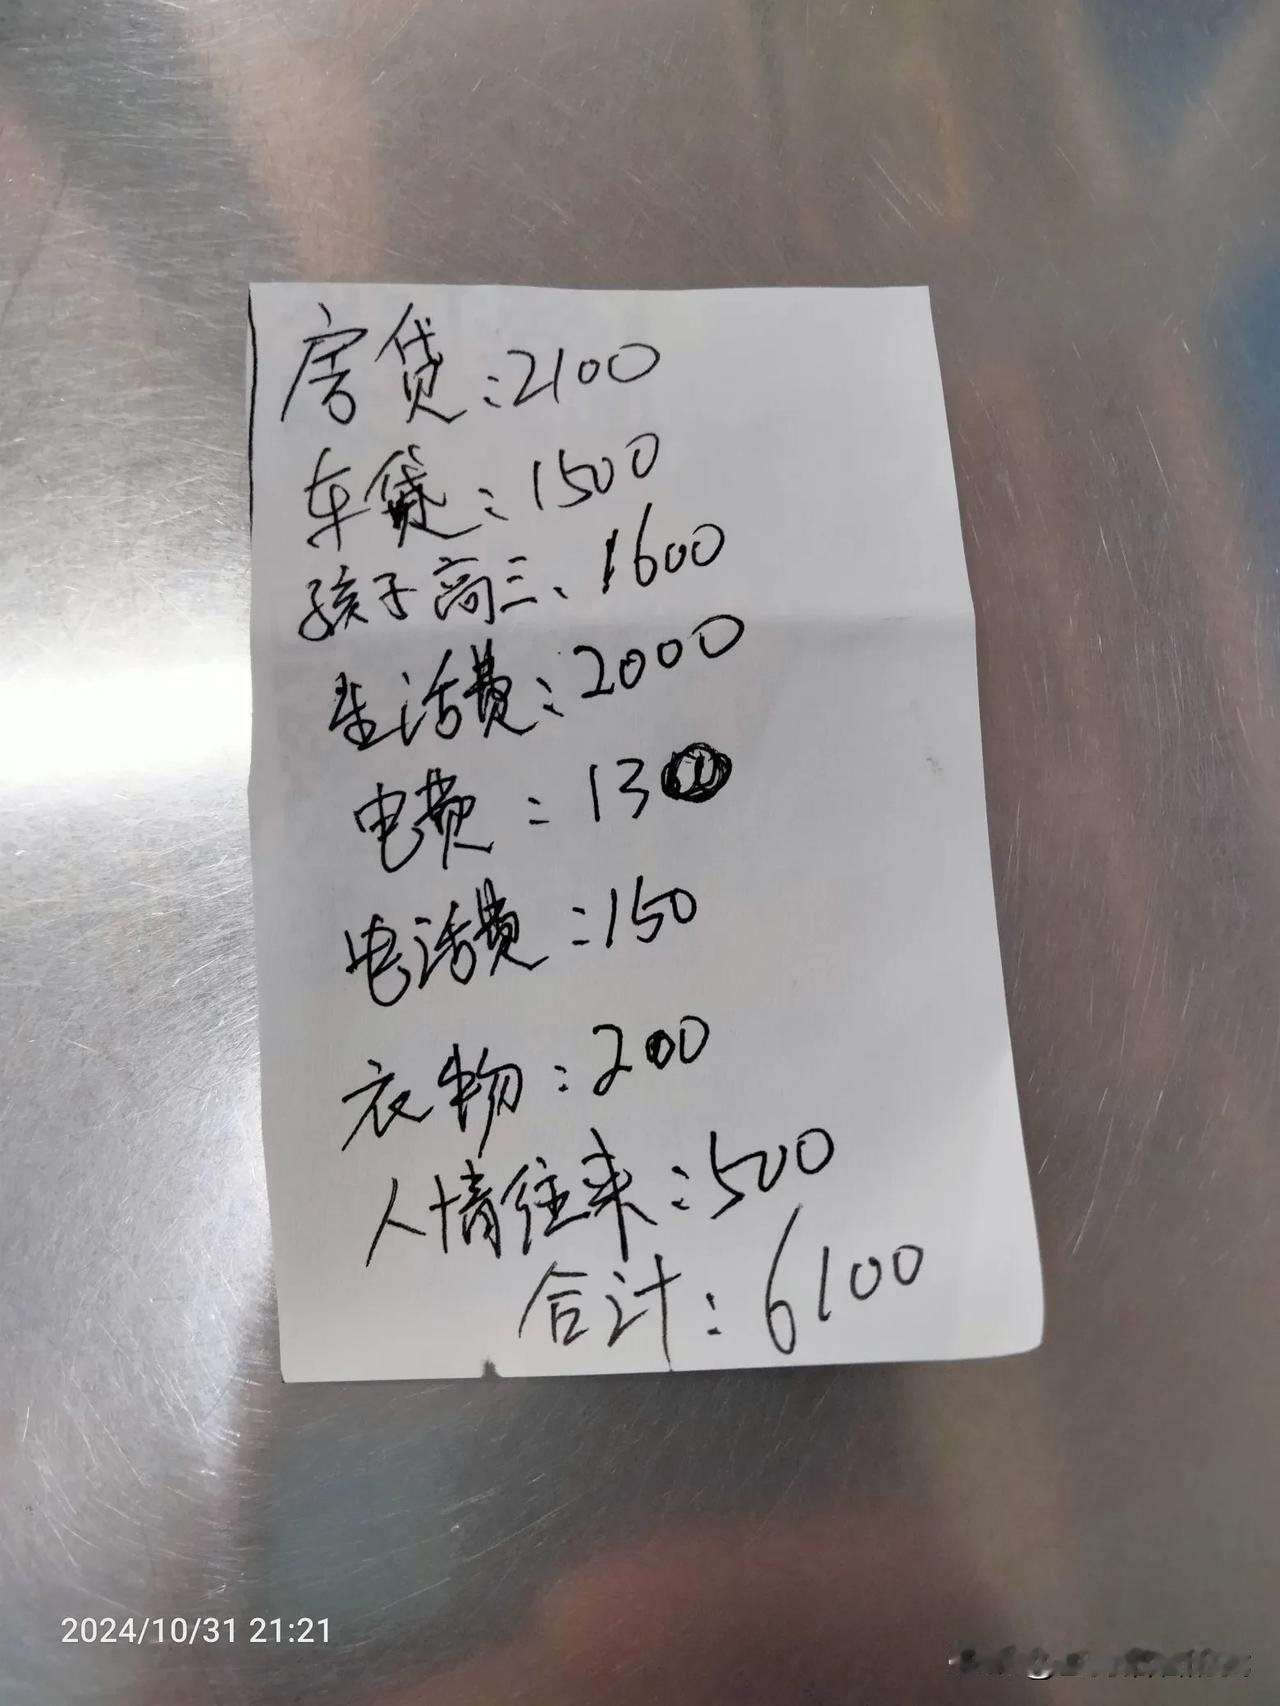 房贷:2100
车贷:1500
孩子高三、1600
生活费:2000
电费:130
电话费:150
衣物:200
人情往来:500
合计:6100
2024/10/31 21:21